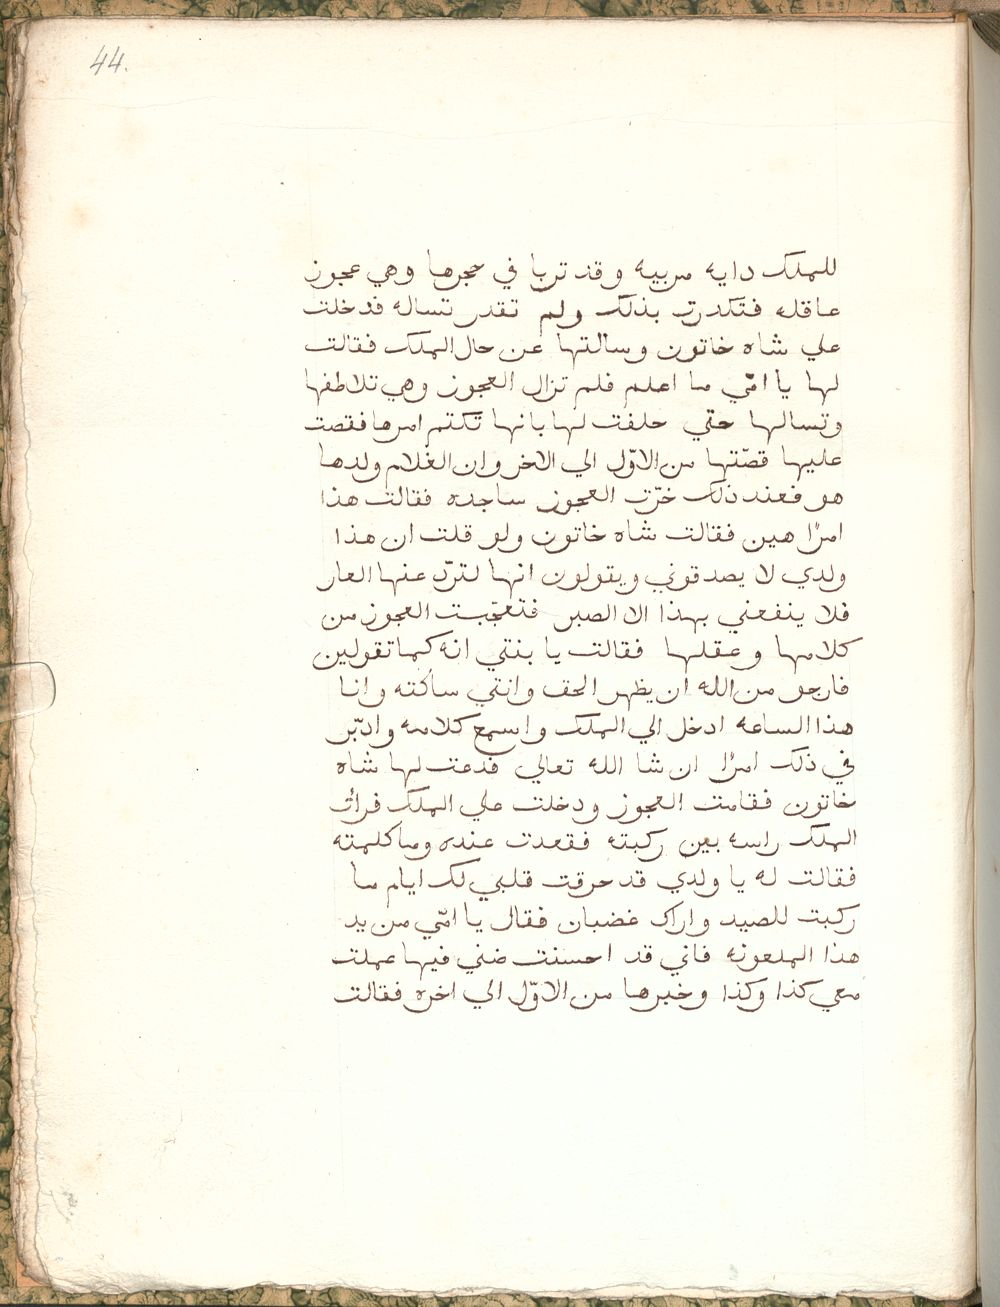 44.
للملك دايه مربيه وقد تربا في حجرها وهي عجوز
عاقله فتكدرت بذلك ولم تقدر تساله فدخلت
علي شاه خاتون وسالتها عن حال الملك فقالت
لها يا امّي ما اعلم فلم تزال العجوز وهي تلاطفها
وتسالها حتي حلفت لها بانها تكتم امرها فقصت
عليها قصّتها من الاوّل الي الاخر وان الغلام ولدها
هو فعند ذلك خرّت العجوز ساجده فقالت هذا
امرًا هين فقالت شاه خاتون ولو قلت ان هذا
ولدي لا يصدقوني ويقولون انها لتردّ عنها العار
فلا ينفعني بهذا الا الصبر فتعجّبت العجوز من
كلامها وعقلها فقالت يا بنتي انه كما تقولين
فارجو من الله ان يظهر الحق وانتي ساكته وانا
هذا الساعه ادخل الي الملك واسمع كلامه وادبّر
في ذلك امرًا ان شا الله تعالي فدعت لها شاه
خاتون فقامت العجوز ودخلت علي الملك فرات
الملك راسه بين ركبته فقعدت عنده وما كلمته
فقالت له يا ولدي قد حرقت قلبي لك ايام ما
ركبت للصيد واراك غضبان فقال يا امّي من يد
هذا الملعونه فاني قد احسنت ضني فيها عملت
معي كذا وكذا وخبرها من الاوّل الي اخره فقالت